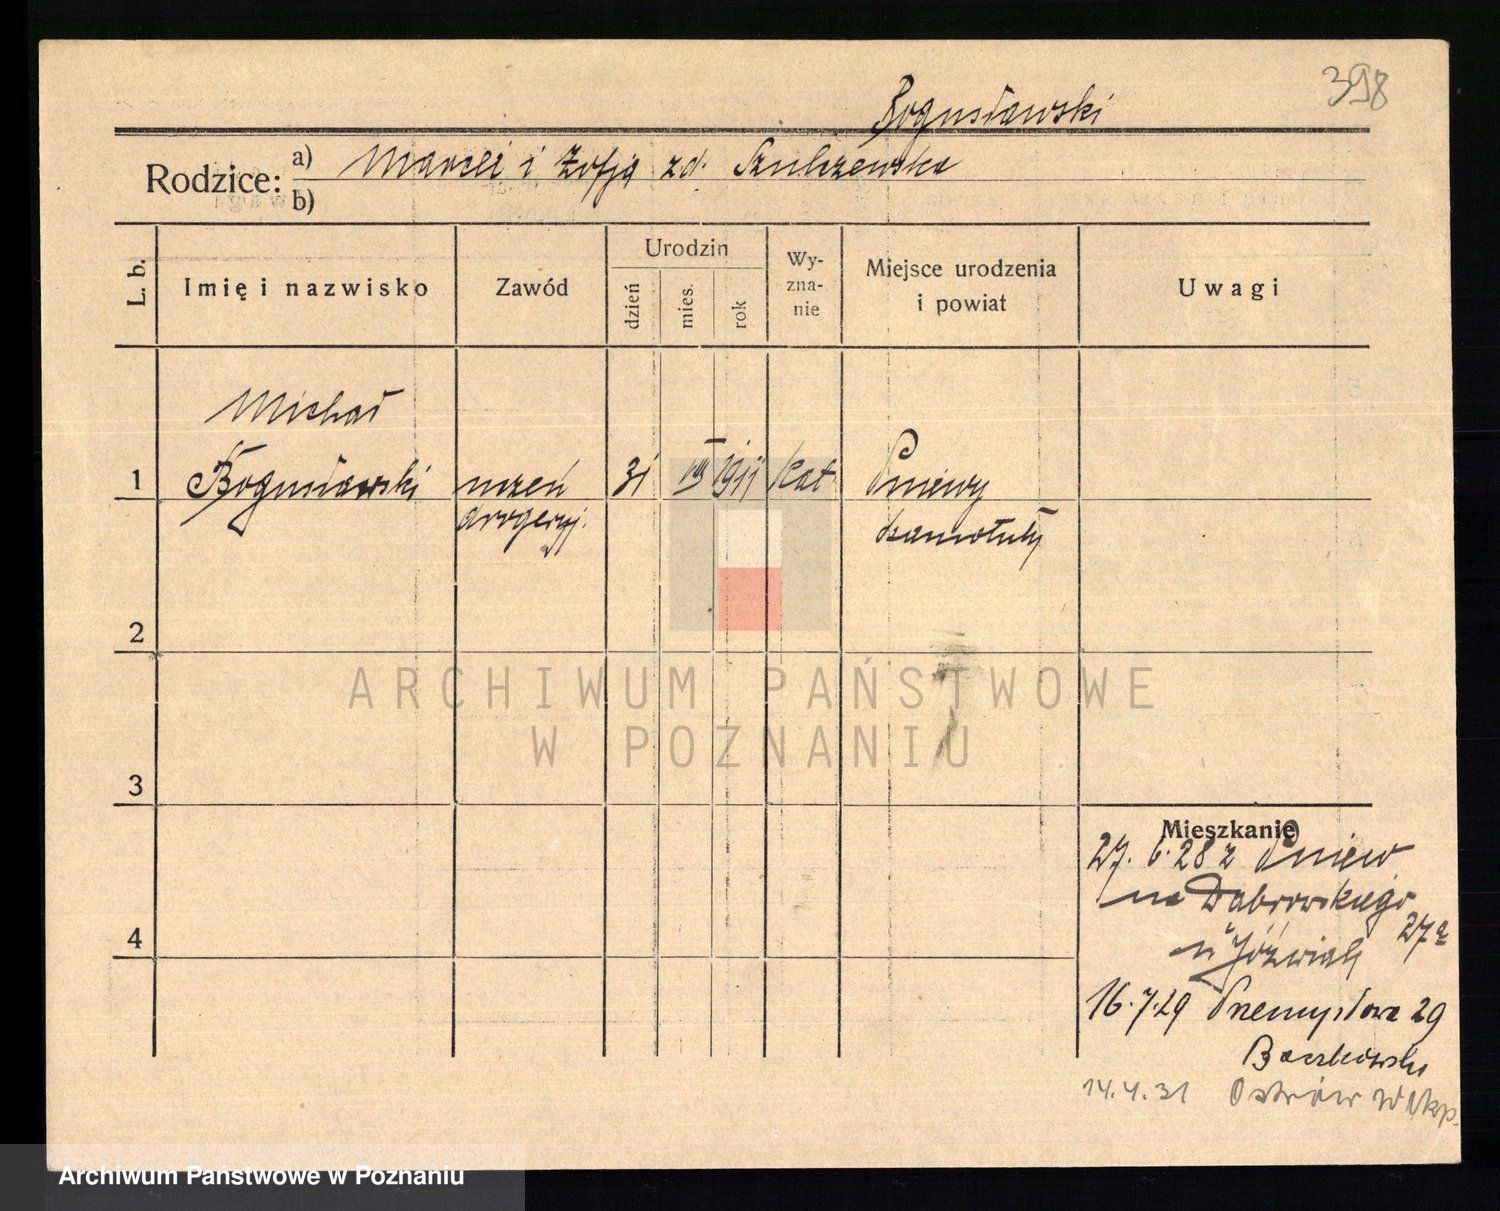 398
Bogusławski
Rodzice: a) Marceli i Zofja zd. Szulczewska
b)
L. b. Imię i nazwisko Zawód Urodzin Wy-zna-nie Miejsce urodzenia i powiat Uwagi
dzień mies. rok
Michał
1 Bogusławski uczeń 31 VIII 1911 kat Pniewy
drogeryj. Szamotuły
2
ARCHIWUM PAŃSTWOWE
W POZNANIU
3
Mieszkanie
27. 6. 28 z Pniew
na Dąbrowskiego
27a
4
u Jóźwiak
16.7.29 Przemysłowa 29
Baczkowski
14.4.31 Ostrów Wlkp.
Archiwum Państwowe w Poznaniu